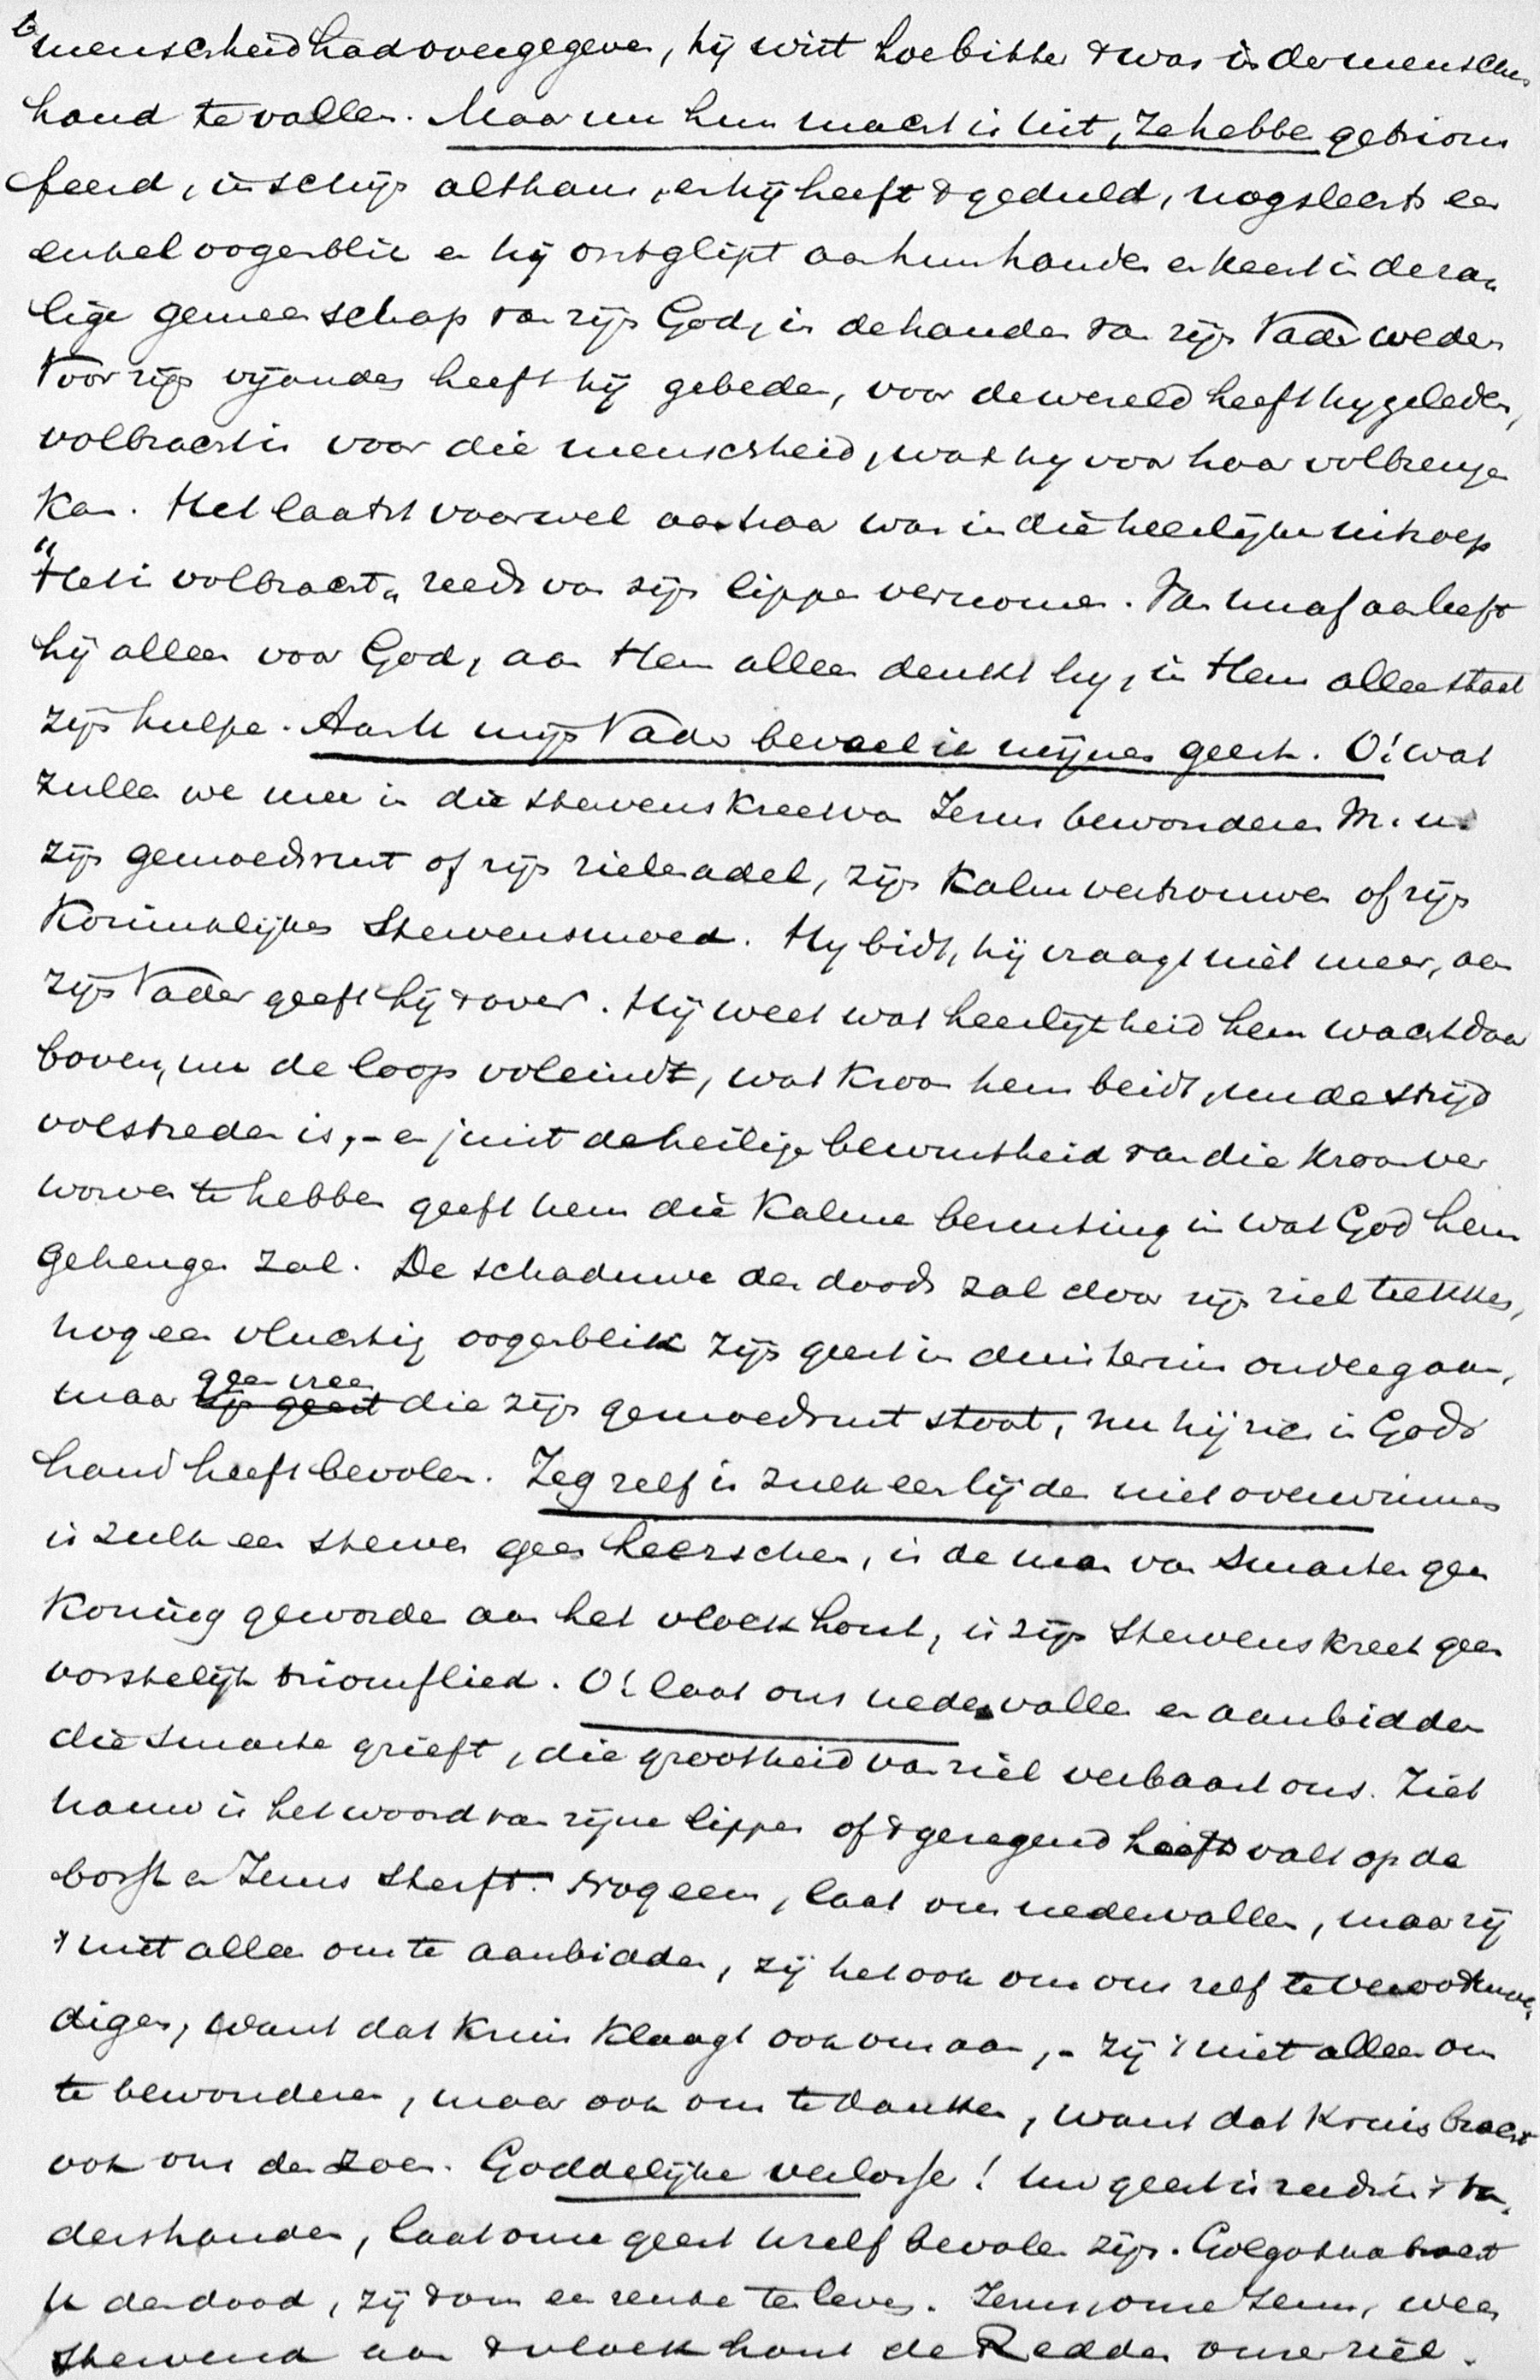 menscheid had overgegeven, hij wist hoe bitter 't was in der menschen
hand te vallen. Maar nu hun macht is uit, ze hebben getriom
feerd, in schijn althans, en hij heeft 't geduld, nog slechts een
enkel oogenblik en hij ontglipt aan hun handen en keert in de za
lige gemeenschap van zijn God, in de handen van zijn Vader weder
Voor zijn vijanden heeft hij gebeden, voor de wereld heeft hij geleden,
volbracht is voor die menscheid, wat hij voor haar volbrengen
kan. Het laatst vaarwel aan haar was in die heerlijke uitroep
"Het is volbracht" reeds van zijn lippen vernomen. Van nu af aan leeft
hij alleen voor God, aan Hem alleen denkt hij, in Hem alleen staat
zijn hulpe. Aan U mijn Vader beveel ik mijnen geest. O! wat
zullen we meer in die stervenskreet van Jezus bewonderen M. u.
zijn gemoedsrust of zijn zieleadel, zijn kalm vertrouwen of zijn
Koninklijken Stervensmoed. Hij bidt, hij vraagt niet meer, aan
zijn Vader geeft hij 't over. Hij weet wat heerlijkheid hem wacht daar
boven, nu de loop voleindt, wat kroon hem beidt, nu de strijd
volstreden is, - en juist de heilige bewustheid van die kroon ver
worven te hebben geeft hem die kalme berusting in wat God hem
gehengen zal. De schaduwe des doods zal door zijn ziel trekken,
nog een vluchtig oogenblik zijn geest in duisternis ondergaan,
maar geen vrees die zijn gemoedsrust stoort, nu hij die in Gods
hand heeft bevolen. Zeg zelf is zulk een lijden niet overwinnen
is zulk een sterven geen heerschen, is de man van smarten geen
Koning geworden aan het vloekhout, is zijn Stervenskreet geen
vorstelijk triomflied. O! laat ons nedervallen en aanbidden
die smarte grieft, die grootheid van ziel verbaast ons. Ziet
nauw is het woord van zijne lippen of 't gezegend hoofd valt op de
borst en Jezus Sterft. Nog eens, laat ons nedervallen, maar zij
't niet alleen om te aanbidden, zij het ook om ons zelf te verootmoe
digen, want dat kruis klaagt ook ons aan, - zij 't niet alleen om
te bewonderen, maar ook om te danken, want dat kruis bracht
ook ons den zoen. Goddelijke verlosser! Uw geest is reeds in 's Va
dershanden, laat onze geest Uzelf bevolen zijn. Golgotha bracht
U den dood, zij 't ons een ten leven. Jezus, onze Jezus, wees
stervend aan 't vloekhout de Redder onzer ziel.